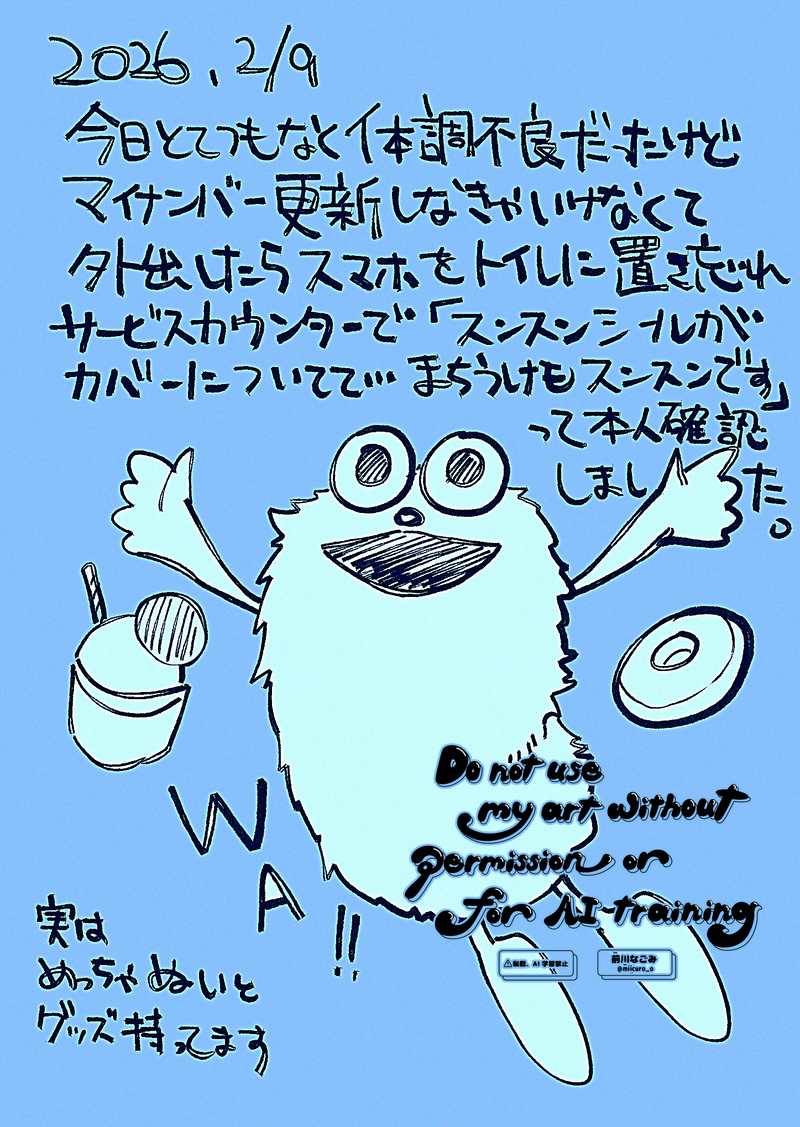 2026.2/9
今日とてつもなく体調不良だったけど
マイナンバー更新しなきゃいけなくて
外出したらスマホをトイレに置き忘れ
サービスカウンターで「スンスンシールが
カバーについてて… まちうけもスンスンです」
って本人確認
しました。
WA!!
Do not use
my art without
permission or
for AI training
⚠転載、AI学習禁止
前川なごみ
@miicuro_o
実は
めっちゃぬいと
グッズ持ってます